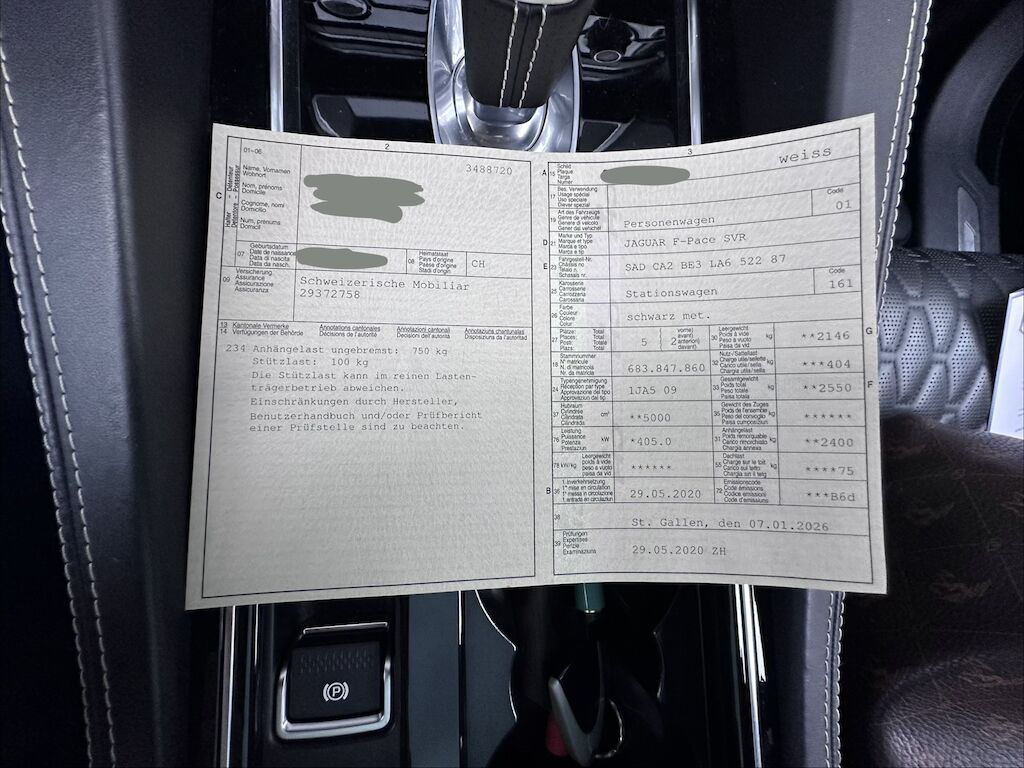 2
01-06
3488720
C
Halter – Détenteur
Detentore – Possessur
Name, Vornamen
Wohnort
Nom, prénoms
Domicile
Cognome, nomi
Domicilio
Num, prenums
Domicil
07
Geburtsdatum
Date de naissance
Data di nascita
Data da nasch.
08
Heimatstaat
Pays d'origine
Paese d'origine
Stadi d'origin
CH
09
Versicherung
Assurance
Assicurazione
Assicuranza
Schweizerische Mobiliar
29372758
13
14
Kantonale Vermerke
Verfügungen der Behörde
Annotations cantonales
Décisions de l'autorité
Annotazioni cantonali
Decisioni dell'autorità
Annotaziuns chantunalas
Disposiziuns da l'autoritad
234 Anhängelast ungebremst: 750 kg
Stützlast: 100 kg
Die Stützlast kann im reinen Lasten-
trägerbetrieb abweichen.
Einschränkungen durch Hersteller,
Benutzerhandbuch und/oder Prüfbericht
einer Prüfstelle sind zu beachten.
3
A
15
Schild
Plaque
Targa
Numer
weiss
17
Bes. Verwendung
Usage spécial
Uso speciale
Diever spezial
Code
01
19
Art des Fahrzeugs
Genre de véhicule
Genere di veicolo
Gener dal vehichel
Personenwagen
D
21
Marke und Typ
Marque et type
Marca e tipo
Marca e tip
JAGUAR F-Pace SVR
E
23
Fahrgestell-Nr.
Châssis no
Telaio n.
Schassis nr.
SAD CA2 BE3 LA6 522 87
25
Karosserie
Carrosserie
Carrozzeria
Carossaria
Stationswagen
Code
161
26
Farbe
Couleur
Colore
Color
schwarz met.
27
Plätze: Total
Places: Total
Posti: Totale
Plazs: Total
5
2
vorne)
avant)
anteriori)
davant)
30
Leergewicht
Poids à vide
Peso a vuoto
Paisa da vid
kg
**2146
G
18
Stammnummer
N° matricule
N. di matricola
Nr. da matricla
683.847.860
32
Nutz-/Sattellast
Charge utile/sellette
Carico utile/sella
Chargia utila/sella
kg
***404
24
Typengenehmigung
Réception par type
Approvazione del tipo
Approvaziun dal tip
1JA5 09
33
Gesamtgewicht
Poids total
Peso totale
Paisa totala
kg
**2550
F
37
Hubraum
Cylindrée
Cilindrata
Cilindrada
cm³
**5000
35
Gewicht des Zuges
Poids de l'ensemble
Peso del convoglio
Paisa cumposiziun
kg
******
76
Leistung
Puissance
Potenza
Prestaziun
kW
*405.0
31
Anhängelast
Poids remorquable
Carico rimorchiato
Chargia annexa
kg
**2400
78
kW/kg
Leergewicht
poids à vide
peso a vuoto
paisa da vid
******
55
Dachlast
Charge sur le toit
Carico sul tetto
Chargia sin il tetg
kg
****75
B
36
1. Inverkehrsetzung
1re mise en circulation
1a messa in circolazione
1. entrada en circulaziun
29.05.2020
72
Emissionscode
Code émissions
Codice emissioni
Code d'emissiuns
***B6d
38
St. Gallen, den 07.01.2026
39
Prüfungen
Expertises
Perizie
Examinaziuns
29.05.2020 ZH
P